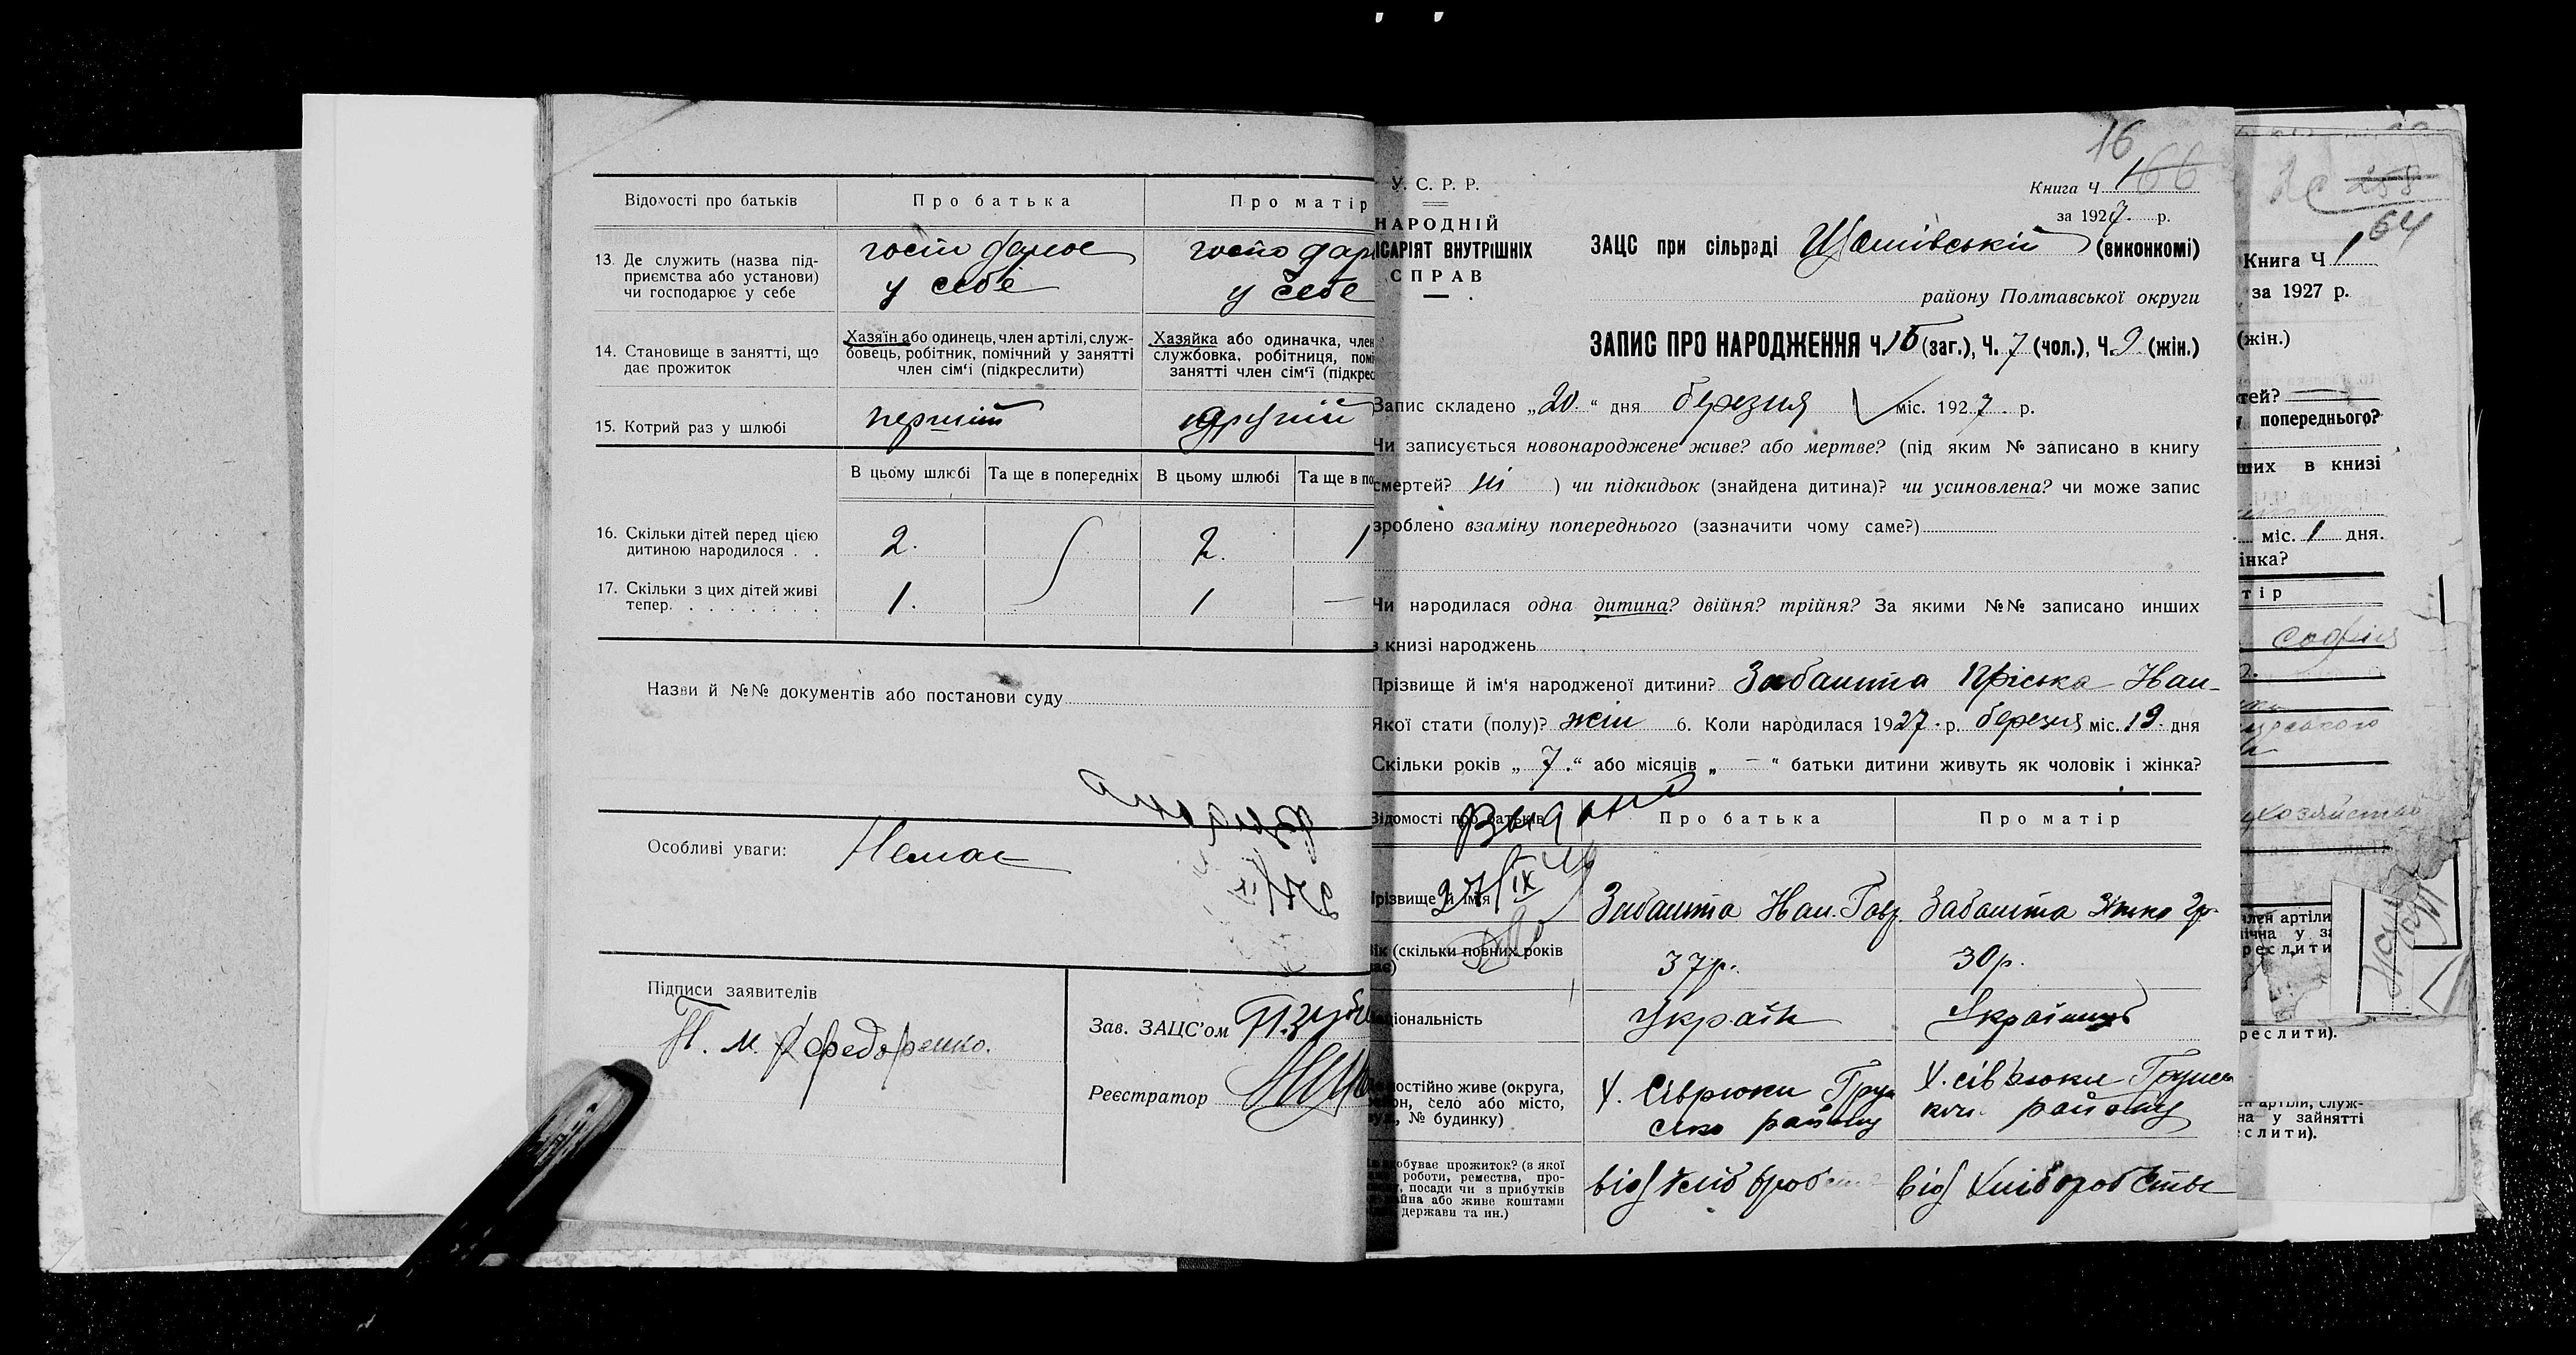 Відомості про батьків
Про батька
Про матір
13. Де служить (назва під-
приємства або установи)
чи господарює у себе
господарює
у себе
господар
у себе
14. Становище в занятті, що
дає прожиток
Хазяїн або одинець, член артілі, служ-
бовець, робітник, помічний у занятті
член сім'ї (підкреслити)
Хазяйка або одиначка, член
службовка, робітниця, помі
занятті член сім'ї (підкрес
15. Котрий раз у шлюбі
перший
другий
В цьому шлюбі
Та ще в попередніх
В цьому шлюбі
Та ще в по
16. Скільки дітей перед цією
дитиною народилося . .
2.
2.
1
17. Скільки з цих дітей живі
тепер. . . . . . . .
1.
1
—
Назви й №№ документів або постанови суду
Особливі уваги:
Немає
Підписи заявителів
П. М. Федоренко.
Зав. ЗАЦС'ом
Реєстратор
16
166
У. С. Р. Р.
НАРОДНІЙ
ІСАРІЯТ ВНУТРІШНІХ
СПРАВ
Книга Ч 1
за 1927. р.
ЗАЦС при сільраді (виконкомі)
району Полтавської округи
ЗАПИС ПРО НАРОДЖЕННЯ Ч. 16 (заг.), Ч. 7 (чол.), Ч. 9 (жін.)
Запис складено „20.“ дня березня міс. 1927. р.
Чи записується новонароджене живе? або мертве? (під яким № записано в книгу
смертей? ні ) чи підкидьок (знайдена дитина)? чи усиновлена? чи може запис
зроблено взаміну попереднього (зазначити чому саме?)
Чи народилася одна дитина? двійня? трійня? За якими №№ записано инших
в книзі народжень
Прізвище й ім'я народженої дитини? Забашта Пріська Ива-
Якої стати (полу)? жін 6. Коли народилася 1927. р. березня міс. 19. дня
Скільки років „7.“ або місяців „—“ батьки дитини живуть як чоловік і жінка?
Відомості про батьків
Про батька
Про матір
Видано
27/IX
Прізвище й ім'я
Забашта Ив. Гавр.
Забашта
Вік (скільки повних років
має)
37р.
30р.
ціональність
Україн
остійно живе (округа,
он, село або місто,
№ будинку)
Х. Сіврюки Грун
сько району
Х. сіврюки Грунсь
кого району
обуває прожиток? (з якої
роботи, ремества, про-
, посади чи з прибутків
айна або живе коштами
держави та ин.)
від хліборобст
від хліборобства
258
64
Книга Ч 1
за 1927 р.
(жін.)
тей?
попереднього?
ших в книзі
міс. 1 дня.
інка?
тір
Софія
член артіли
ічна у за
реслити
реслити).
ен артіли, служ-
на у зайнятті
еслити).